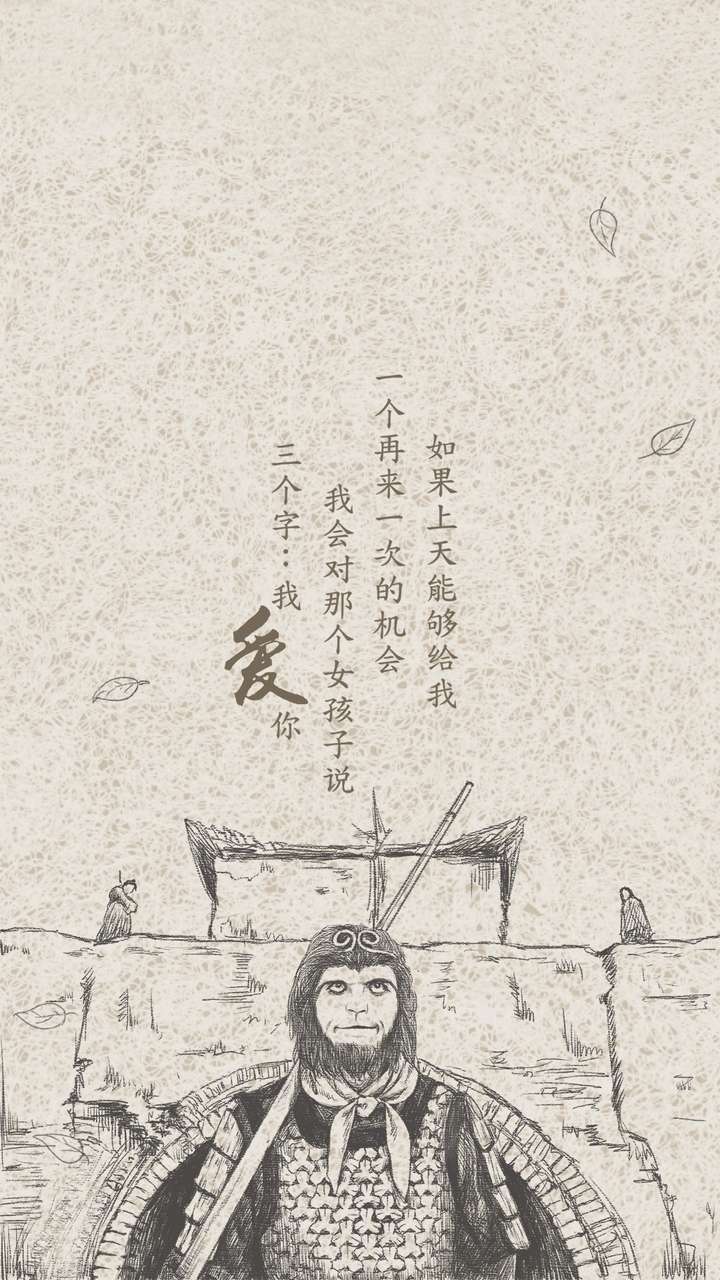 如果上天能够给我
一个再来一次的机会
我会对那个女孩子说
三个字：我爱你